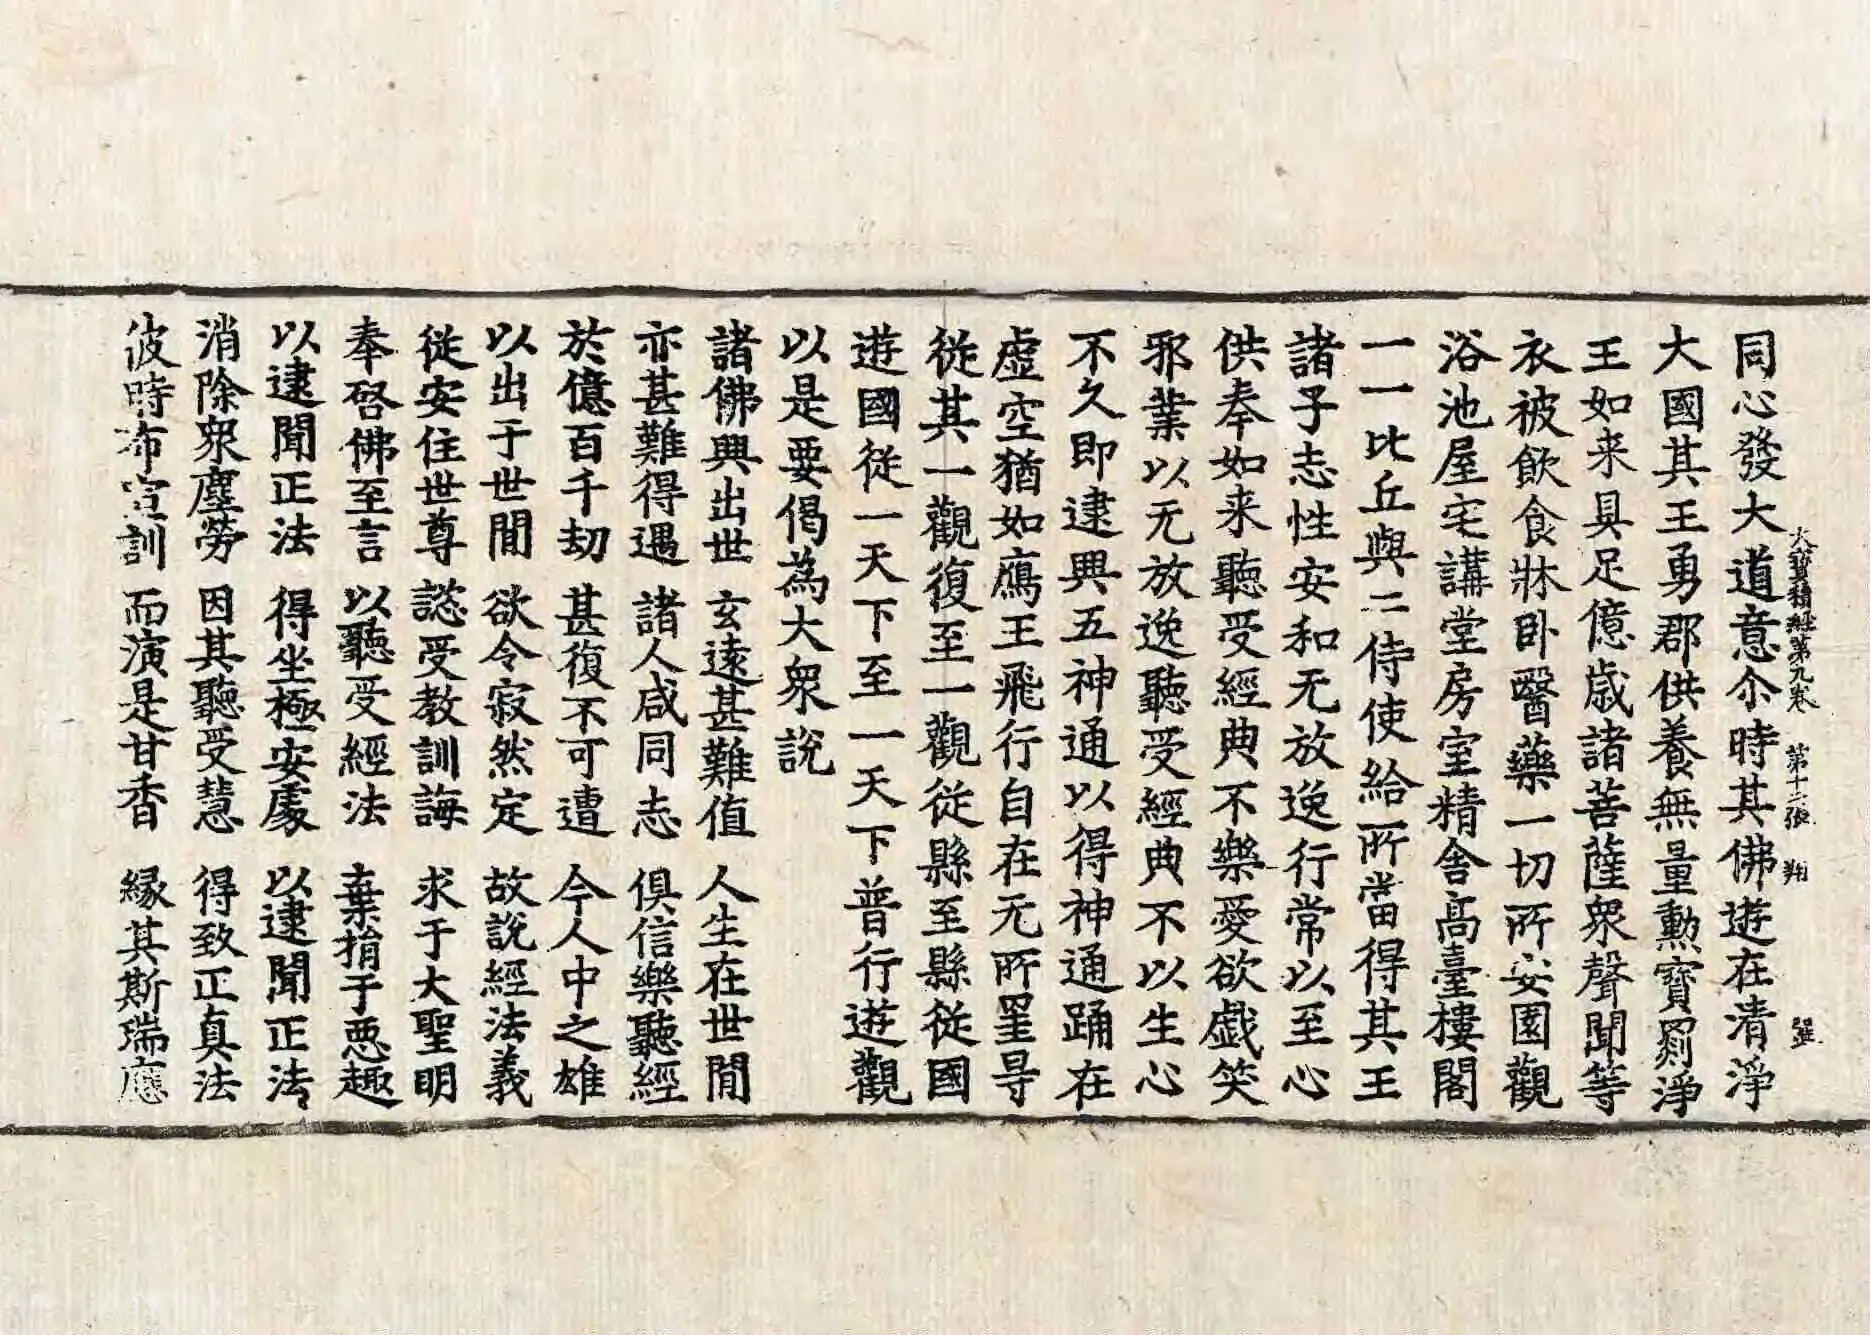 大寶積經第九卷　第十二張　翔
同心發大道意尒時其佛遊在清淨
大國其王勇郡供養無量勲寶罽淨
王如来具足億歲諸菩薩衆聲聞等
衣被飲食牀卧醫藥一切所安園觀
浴池屋宅講堂房室精舍髙臺樓閣
一一比丘與二侍使給所當得其王
諸子志性安和无放逸行常以至心
供奉如来聽受經典不樂愛欲戲笑
邪業以无放逸聽受經典不以生心
不久即逮興五神通以得神通踊在
虛空猶如鴈王飛行自在无所罣㝵
從其一觀復至一觀從縣至縣從國
遊國從一天下至一天下普行遊觀
以是要偈為大衆說
諸佛興出世　玄遠甚難值　人生在世閒
亦甚難得遇　諸人咸同志　俱信樂聽經
於億百千劫　甚復不可遭　今人中之雄
以出于世閒　欲令寂然定　故說經法義
從安住世尊　諮受教訓誨　求于大聖明
奉啓佛至言　以聽受經法　棄捐于惡趣
以逮聞正法　得坐極安處　以逮聞正法
消除衆塵勞　因其聽受慧　得致正真法
彼時布宣訓　而演是甘香　緣其斯瑞應